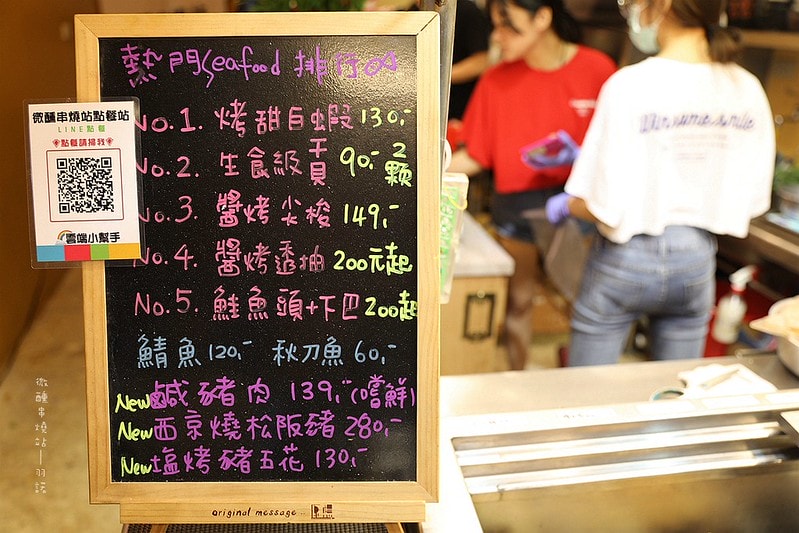 熱門Seafood 排行榜
No.1. 烤甜白蝦 130,-
No.2. 生食級干貝 90,- 2顆
No.3. 醬烤尖梭 149,-
No.4. 醬烤透抽 200元起
No.5. 鮭魚頭+下巴 200起
鯖魚 120,- 秋刀魚 60,-
New 鹹豬肉 139,-(嚐鮮)
New 西京燒松阪豬 280,-
New 塩烤豬五花 130,-
original message...
微醺串燒站點餐站
LINE點餐
點餐請掃我
雲端小幫手
微醺串燒站—羽諾